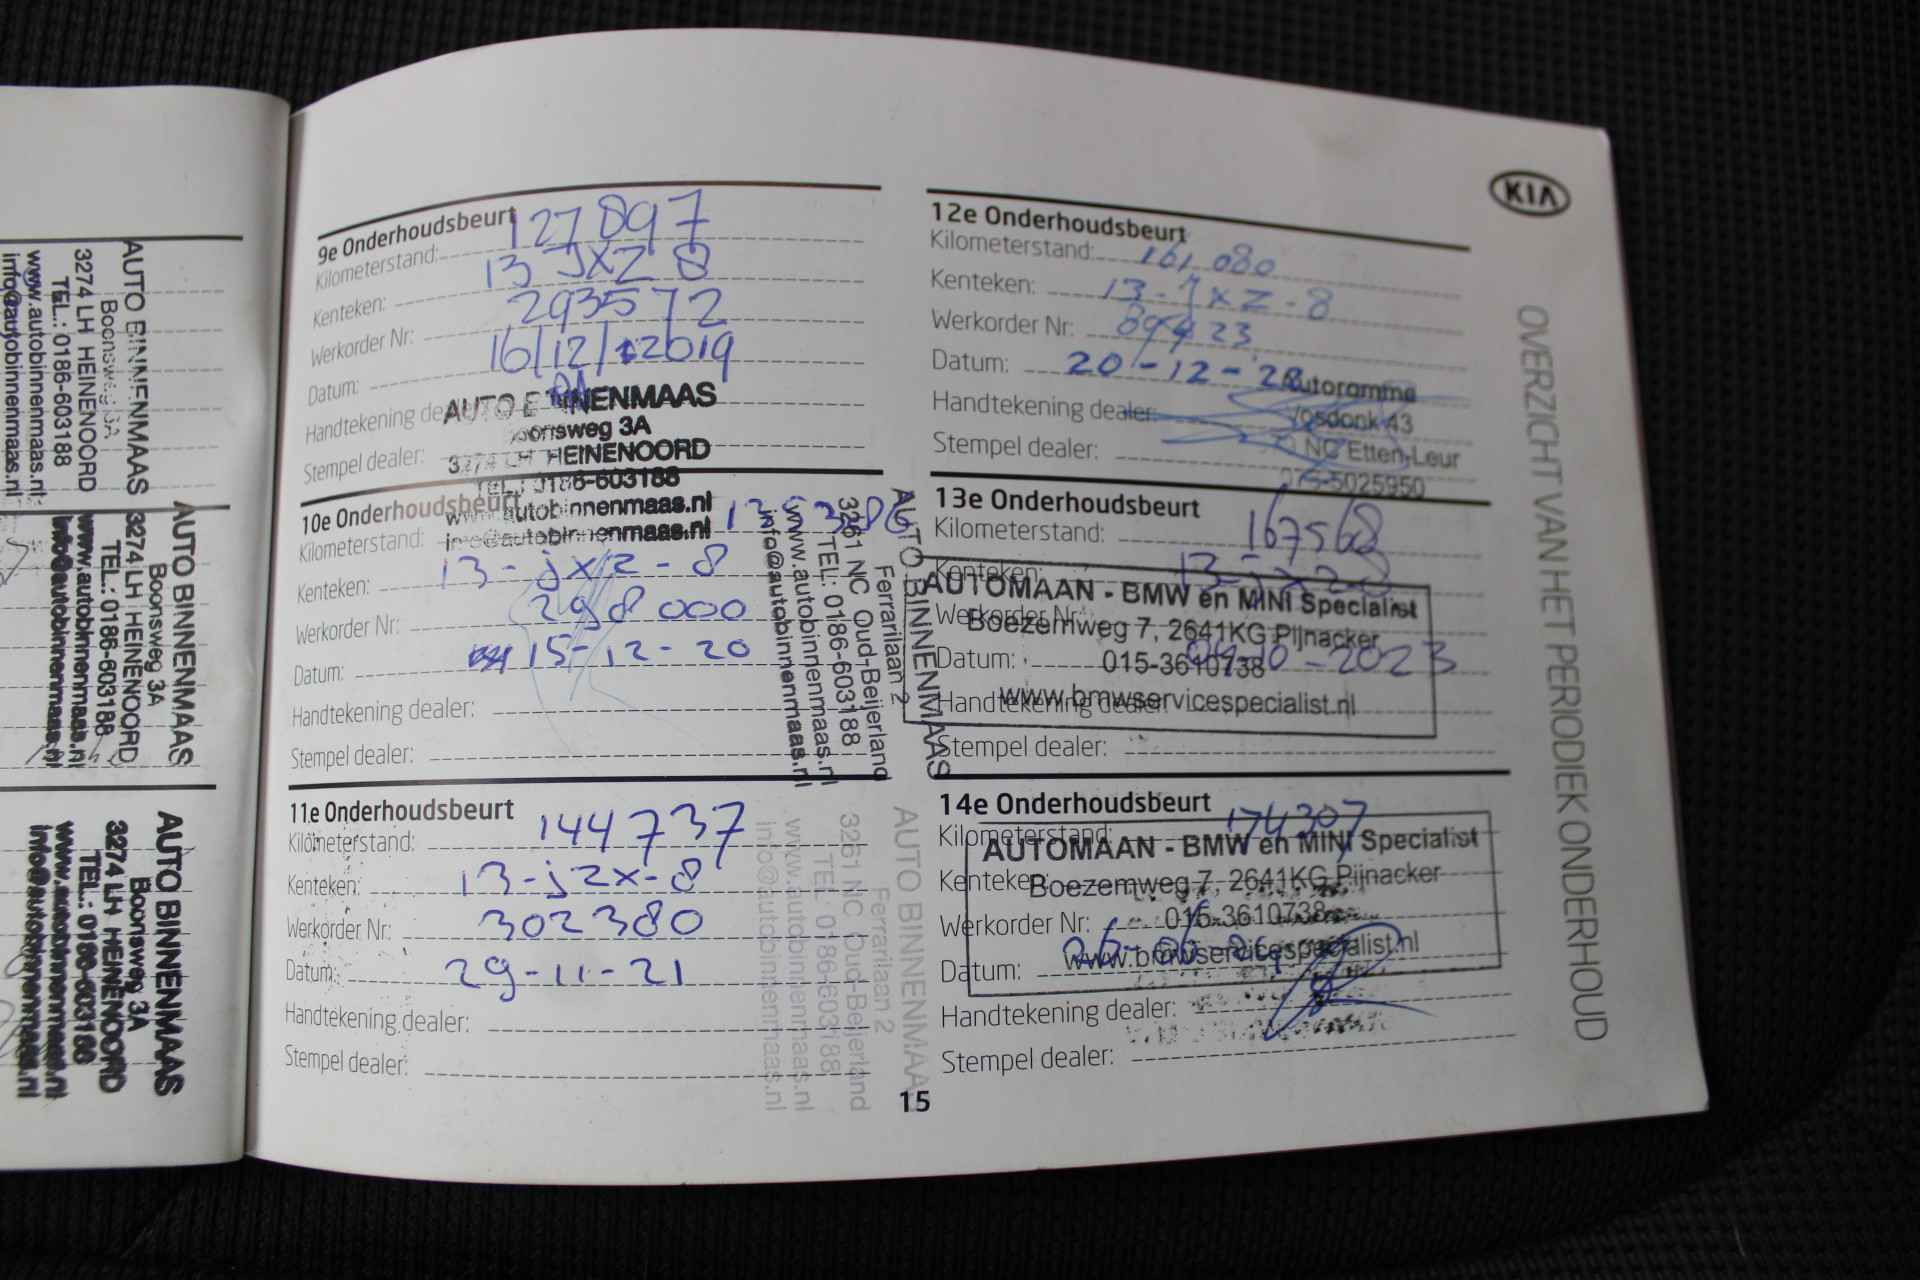 AUTO BINNENMAAS
Boonsweg 3A
3274 LH HEINENOORD
TEL.: 0186-603188
www.autobinnenmaas.nl
info@autobinnenmaas.nl
AUTO BINNENMAAS
Boonsweg 3A
3274 LH HEINENOORD
TEL.: 0186-603188
www.autobinnenmaas.nl
info@autobinnenmaas.nl
AUTO BINNENMAAS
Boonsweg 3A
3274 LH HEINENOORD
TEL.: 0186-603188
www.autobinnenmaas.nl
info@autobinnenmaas.nl
9e Onderhoudsbeurt
Kilometerstand: 127897
Kenteken: 13 JXZ 8
Werkorder Nr: 293572
Datum: 16/12/2019
Handtekening dealer:
Stempel dealer:
AUTO BINNENMAAS
Boonsweg 3A
3274 LH HEINENOORD
TEL.: 0186-603188
www.autobinnenmaas.nl
info@autobinnenmaas.nl
10e Onderhoudsbeurt
Kilometerstand:
Kenteken: 13-jxz-8
Werkorder Nr: 298000
Datum: 15-12-20
Handtekening dealer:
Stempel dealer:
AUTO BINNENMAAS
Ferrarilaan 2
3261 NC Oud-Beijerland
TEL.: 0186-603188
www.autobinnenmaas.nl
info@autobinnenmaas.nl
11e Onderhoudsbeurt
Kilometerstand: 144737
Kenteken: 13-jzx-8
Werkorder Nr: 302380
Datum: 29-11-21
Handtekening dealer:
Stempel dealer:
AUTO BINNENMAAS
Ferrarilaan 2
3261 NC Oud-Beijerland
TEL.: 0186-603188
www.autobinnenmaas.nl
info@autobinnenmaas.nl
15
KIA
12e Onderhoudsbeurt
Kilometerstand: 161 080
Kenteken: 13-JxZ-8
Werkorder Nr: 89423
Datum: 20-12-22
Handtekening dealer:
Stempel dealer:
Autoramma
Vosdonk 43
NC Etten-Leur
076-5025950
13e Onderhoudsbeurt
Kilometerstand: 167568
Kenteken: 13-jxz-8
Werkorder Nr:
Datum: -10-2023
Handtekening dealer:
Stempel dealer:
AUTOMAAN - BMW en MINI Specialist
Boezemweg 7, 2641KG Pijnacker
015-3610738
www.bmwservicespecialist.nl
14e Onderhoudsbeurt
Kilometerstand: 174307
Kenteken:
Werkorder Nr:
Datum:
Handtekening dealer:
Stempel dealer:
AUTOMAAN - BMW en MINI Specialist
Boezemweg 7, 2641KG Pijnacker
015-3610738
www.bmwservicespecialist.nl
OVERZICHT VAN HET PERIODIEK ONDERHOUD